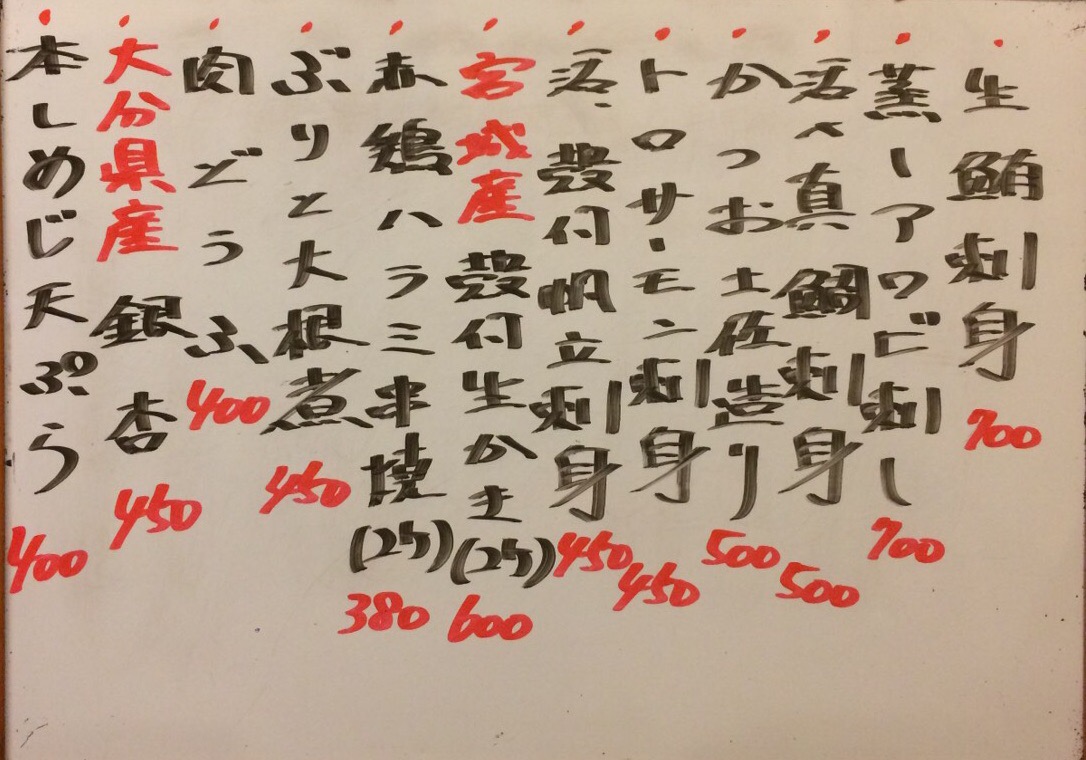 生鮪刺身 700
蒸しアワビ刺し 700
活〆真鯛刺身 500
かつお土佐造り 500
トロサーモン刺身 450
活殻付帆立刺身 450
宮城産 殻付生かき(2ケ) 600
赤鶏ハラミ串焼(2ケ) 380
ぶりと大根煮 450
肉どうふ 400
大分県産 銀杏 450
本しめじ天ぷら 400